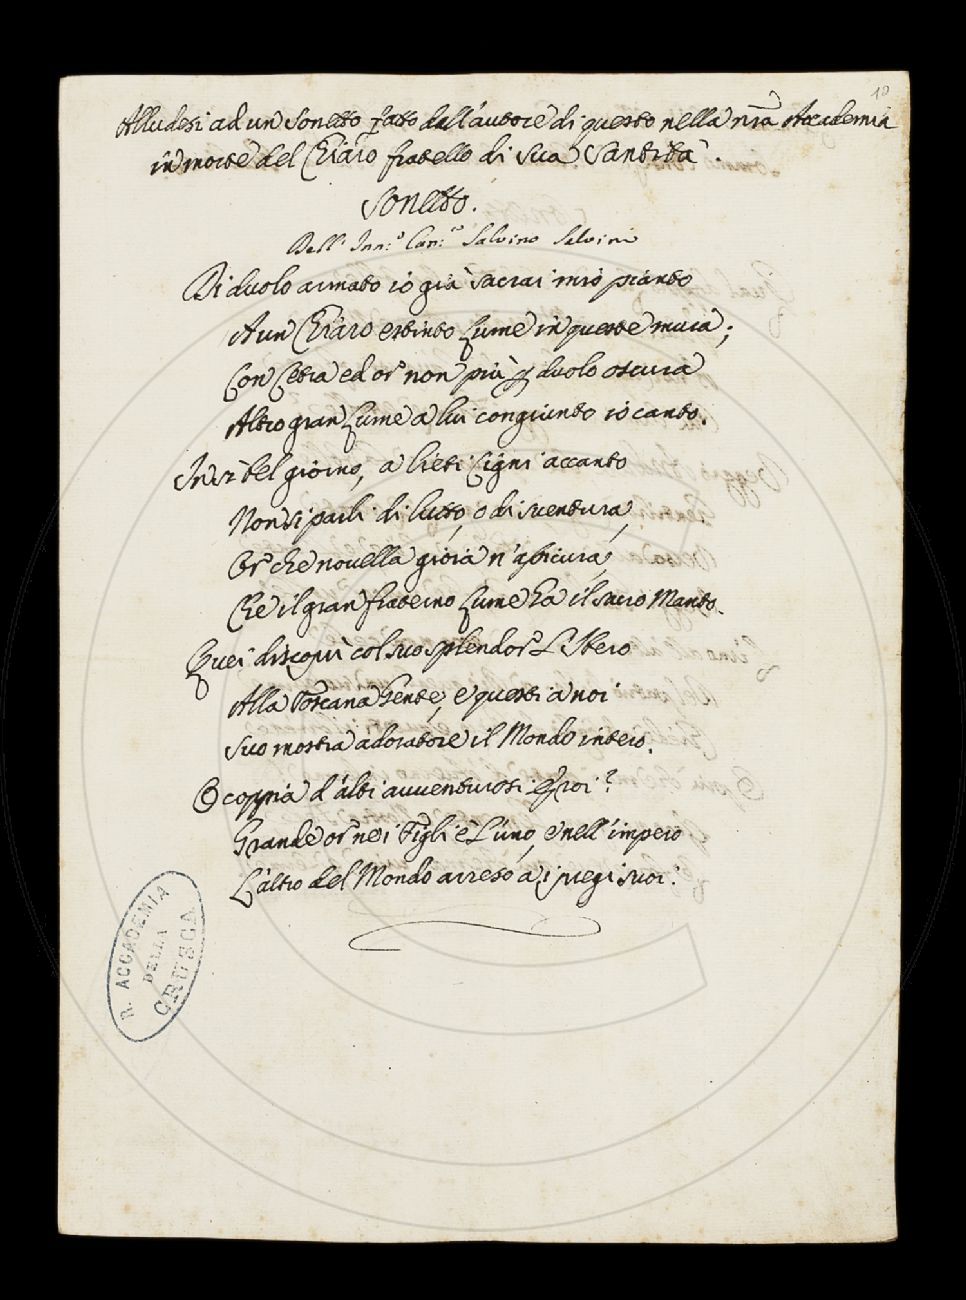 10
Alludesi ad un Sonetto fatto dall'autore di questo nella nrã Accademia
in morte del Chiaro fratello di Sua Santità.
Sonetto.
Dell' Inn.º Can:co Salvino Salvini
Di duolo armato io già sacrai mio pianto
A un Chiaro estinto Lume in queste mura;
Con Cetra ed or non più p duolo oscura
Altro gran Lume a lui congiunto io canto.
In sì bel giorno, a lieti Cigni accanto
Non si parli di lutto, o di sventura,
Or che novella gioia n'assicura,
Che il gran fraterno Lume ha il sacro Manto.
Quei discoprì col suo splendor L'Ibero
Alla Toscana Gente, e questi a noi
Suo mostra adoratore il Mondo intero.
O coppia d'alti avventurosi Eroi!
Grande or nei Figli è L'uno, e nell'impero
L'altro del Mondo atteso a i pregi suoi.
R. ACCADEMIA
DELLA
CRUSCA